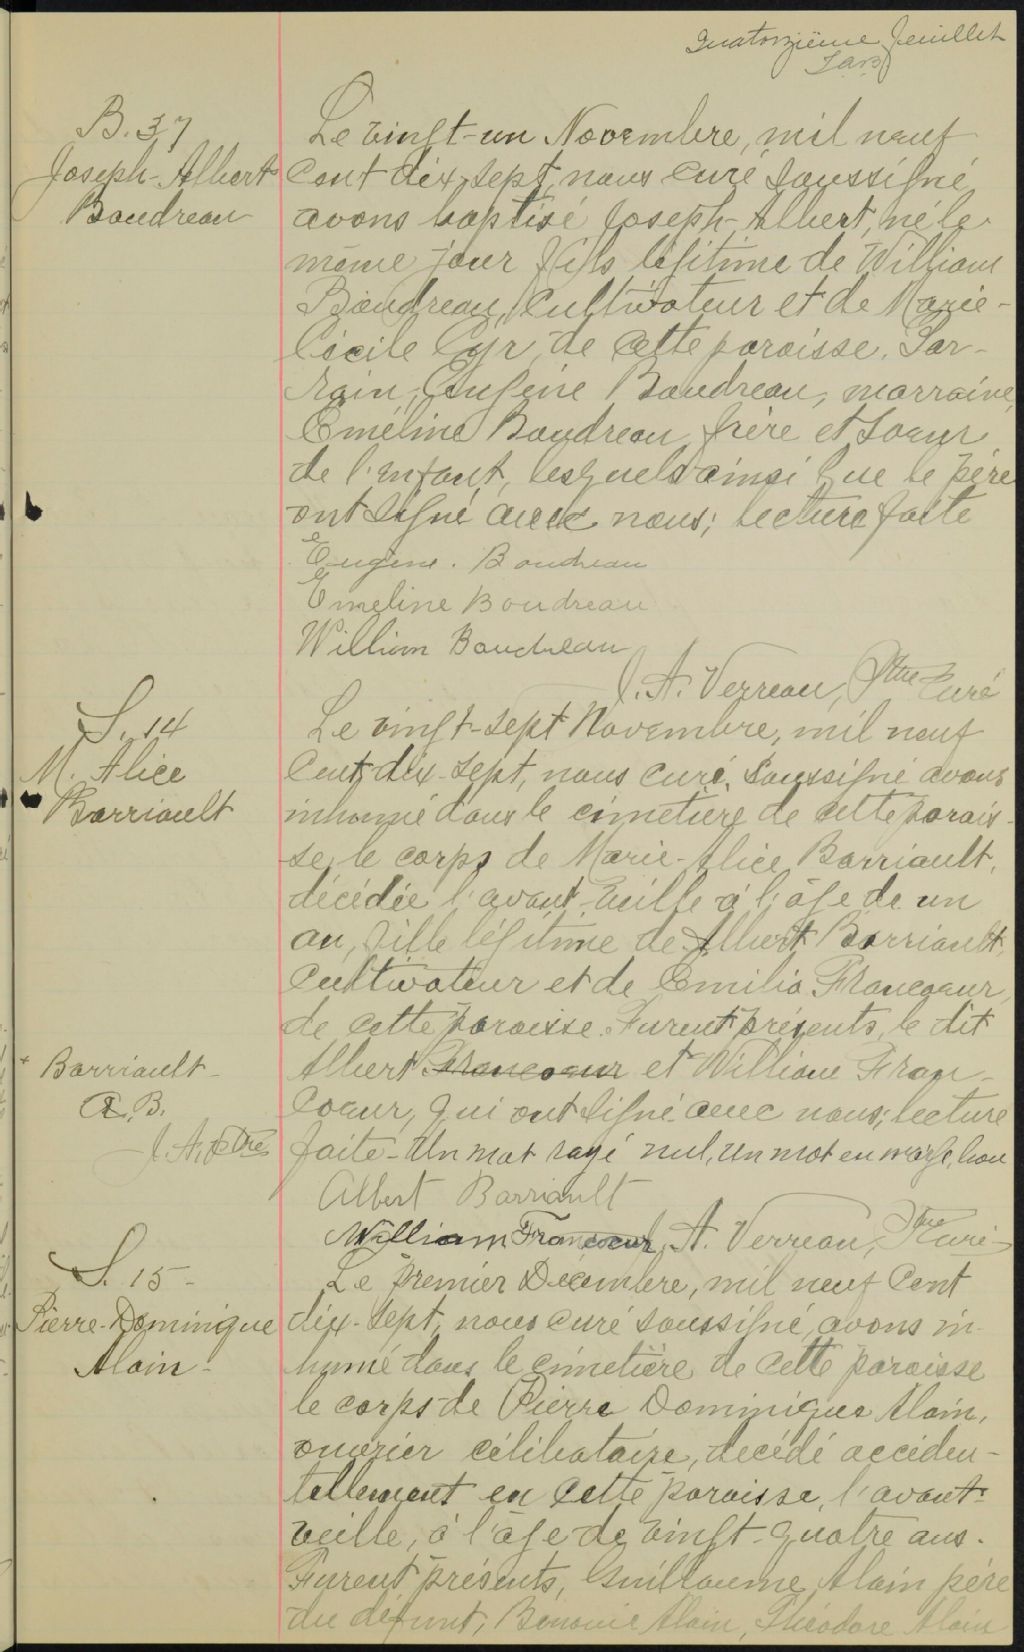 Quatorzième feuillet
B. 37
Joseph-Albert
Boudreau
Le vingt-un Novembre, mil neuf
cent dix-sept, nous curé soussigné
avons baptisé Joseph-Albert, né le
même jour fils légitime de William
Boudreau, cultivateur et de Marie-
Cécile Cyr, de cette paroisse. Par-
rain, Eugène Boudreau, marraine,
Eméline Boudreau frère et soeur
de l'enfant, lesquels ainsi que le père
ont signé avec nous; lecture faite
Eugène. Boudreau
Emeline Boudreau
William Boudreau
J. A. Verreau, Ptre Curé
S. 14
M. Alice
Barriault
Le vingt-sept Novembre, mil neuf
cent, dix-sept, nous curé, soussigné avons
inhumé dans le cimetière de cette parois-
se, le corps de Marie-Alice Barriault,
décédée l'avant-veille à l'âge de un
an, fille légitime de Albert Barriault,
cultivateur et de Emilia Francoeur,
de cette paroisse. Furent présents, le dit
Albert Francoeur et William Fran-
coeur, qui ont signé avec nous; lecture
faite - Un mot rayé nul, un mot en marge, bon
+ Barriault
A. B.
J. A. V. Ptre
Albert Barriault
William Francoeur J. A. Verreau, Ptre Curé
S. 15
Pierre-Dominique
Alain
Le premier Décembre, mil neuf cent
dix-sept, nous curé soussigné, avons in-
humé dans le cimetière de cette paroisse
le corps de Pierre Dominique Alain,
ouvrier célibataire, décédé acciden-
tellement en cette paroisse, l'avant-
veille, à l'âge de vingt-quatre ans.
Furent présents, Guillaume Alain père
du défunt, Alain, Théodore Alain